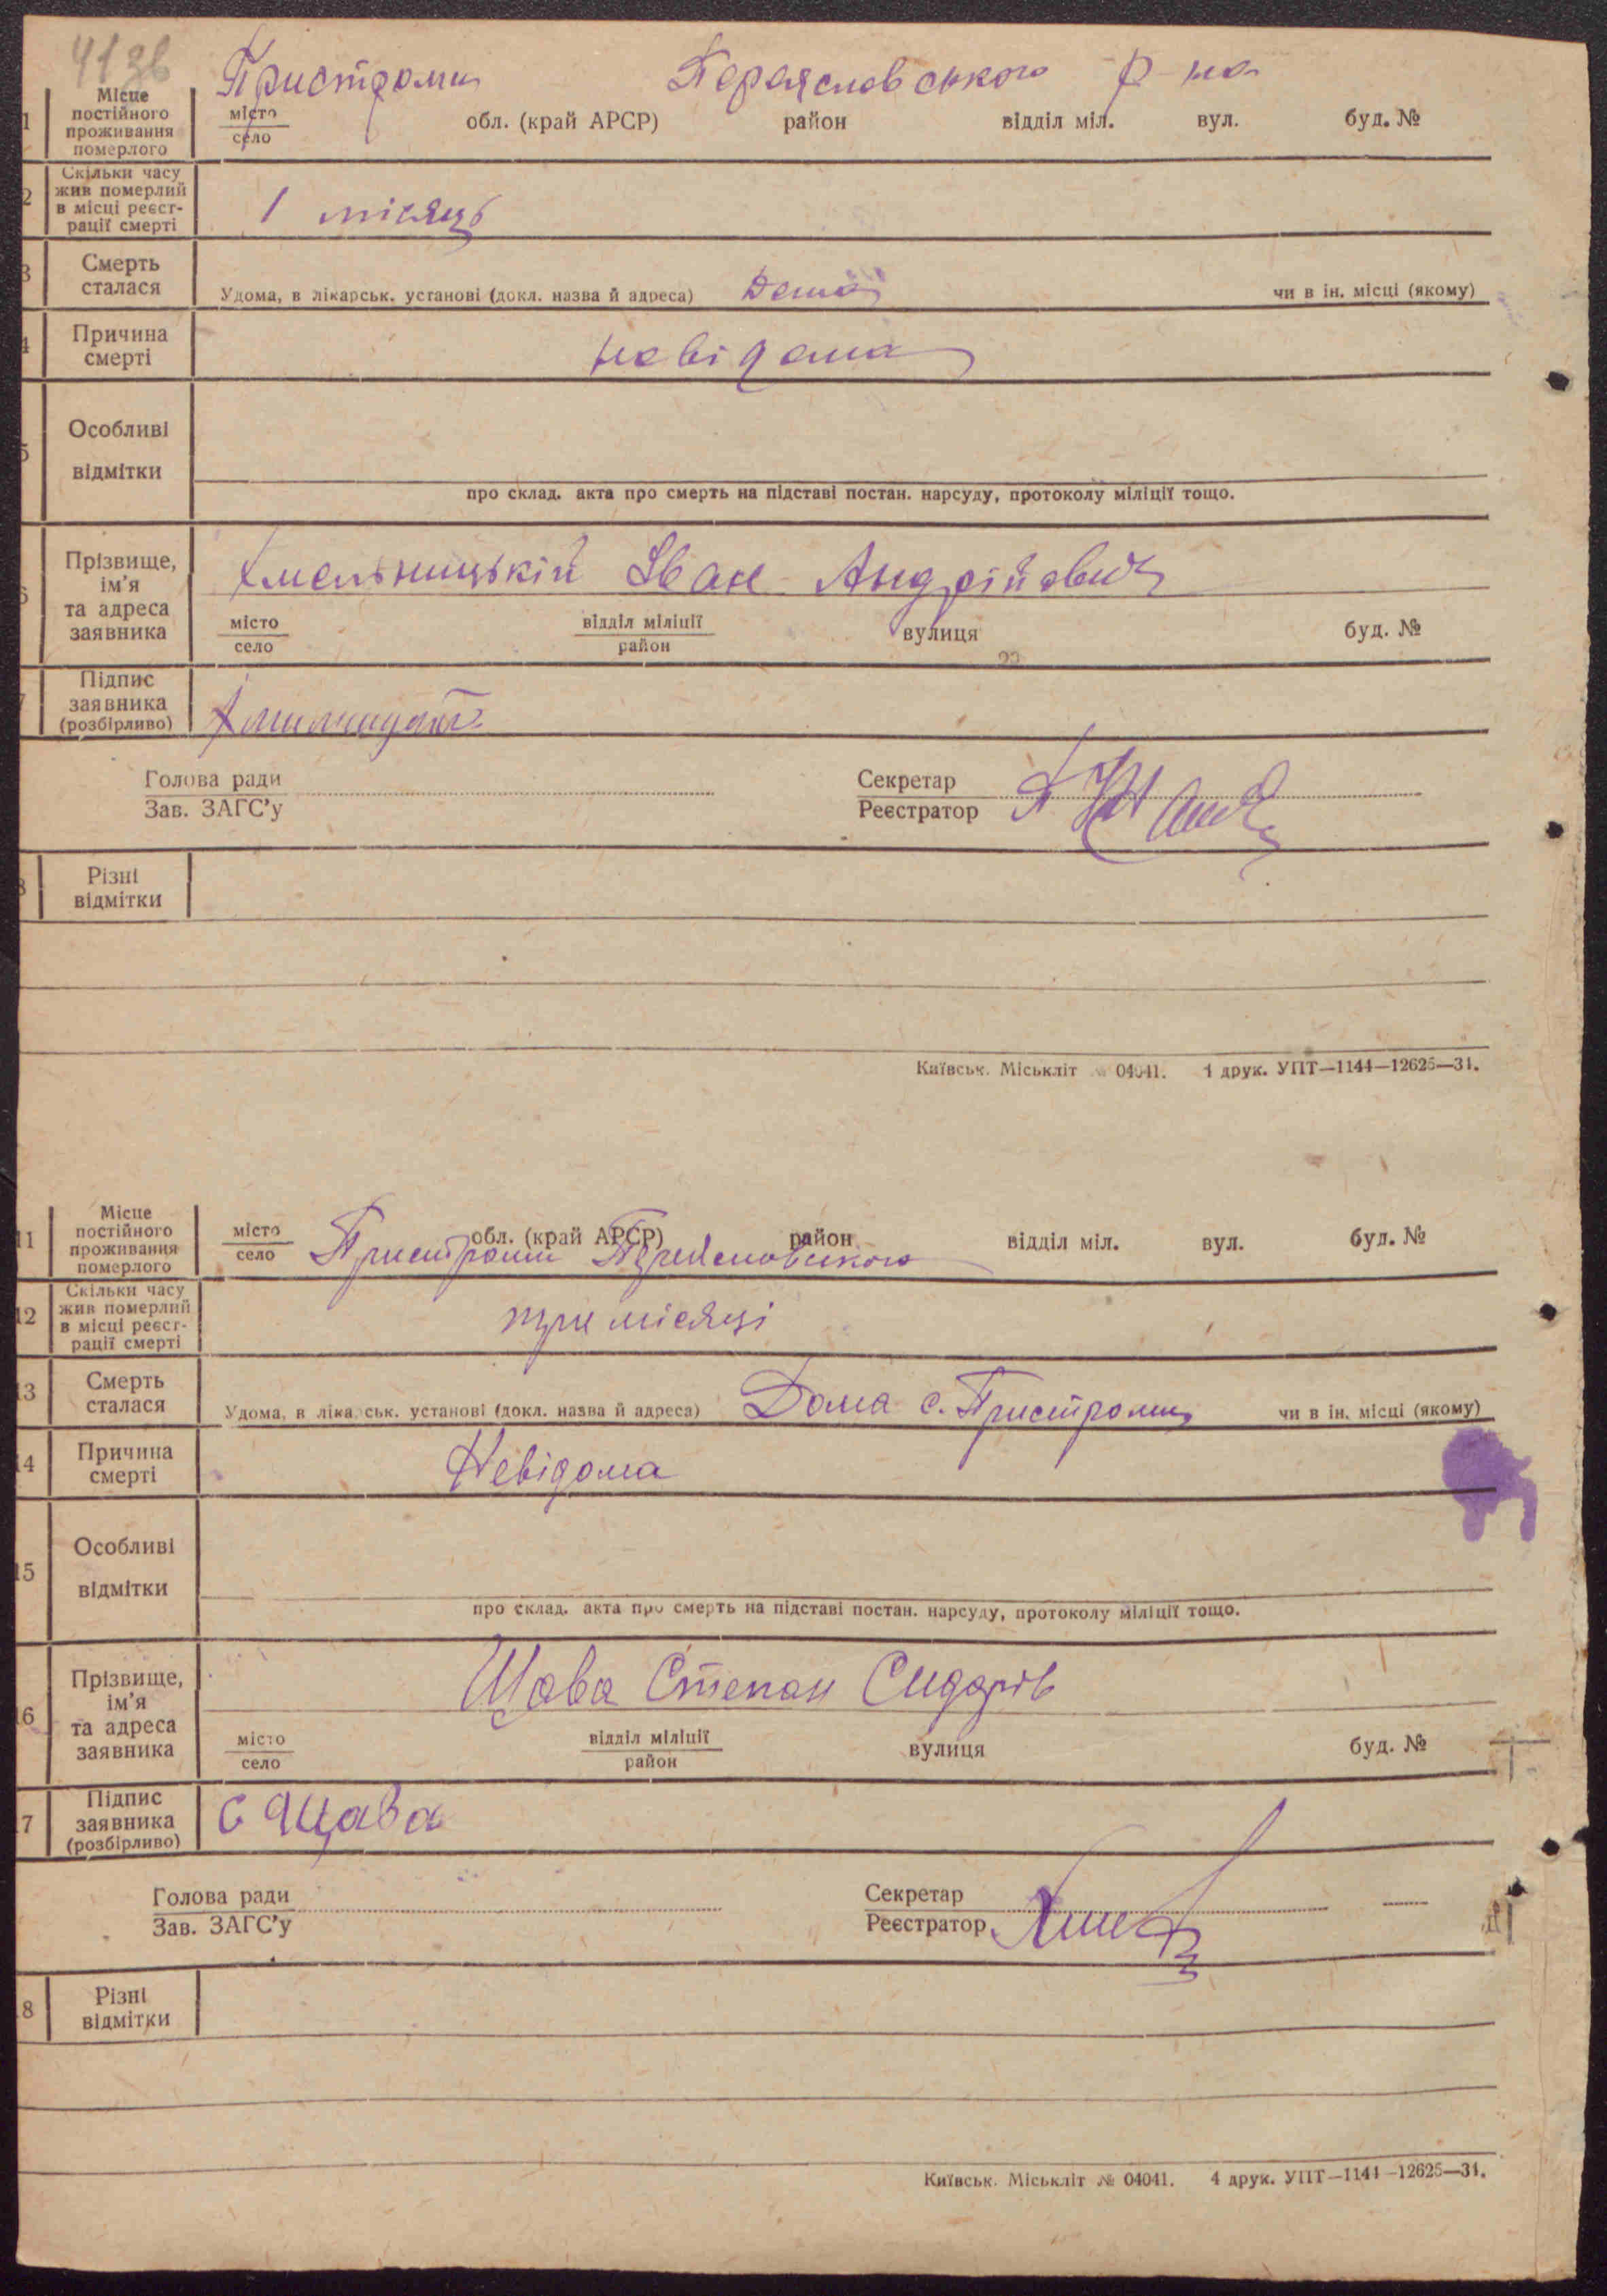 41 зв
Пристроми Переяславського р-на
1
Місце
постійного
проживання
померлого
місто
село
обл. (край АРСР) район відділ міл. вул. буд. №
2
Скільки часу
жив померлий
в місці реєст-
рації смерті
1 місяць
3
Смерть
сталася
Удома, в лікарськ. установі (докл. назва й адреса) Дома чи в ін. місці (якому)
4
Причина
смерті
невідома
5
Особливі
відмітки
про склад. акта про смерть на підставі постан. нарсуду, протоколу міліції тощо.
6
Прізвище,
ім'я
та адреса
заявника
Хмельницькій Іван Андрійович
місто
село
відділ міліції
район
вулиця буд. №
7
Підпис
заявника
(розбірливо)
Голова ради
Зав. ЗАГС'у
Секретар
Реєстратор
8
Різні
відмітки
Київськ. Міськліт № 04041. 4 друк. УПТ—1144—12625—31.
11
Місце
постійного
проживання
померлого
місто
село
обл. (край АРСР) район відділ міл. вул. буд. №
Пристроми Переяславського
12
Скільки часу
жив померлий
в місці реєст-
рації смерті
три місяці
13
Смерть
сталася
Удома, в лікарськ. установі (докл. назва й адреса) Дома с. Пристроми чи в ін. місці (якому)
14
Причина
смерті
Невідома
15
Особливі
відмітки
про склад. акта про смерть на підставі постан. нарсуду, протоколу міліції тощо.
16
Прізвище,
ім'я
та адреса
заявника
Щава Степан Сидорів
місто
село
відділ міліції
район
вулиця буд. №
17
Підпис
заявника
(розбірливо)
С Щава
Голова ради
Зав. ЗАГС'у
Секретар
Реєстратор
18
Різні
відмітки
Київськ. Міськліт № 04041. 4 друк. УПТ—1144—12625—31.